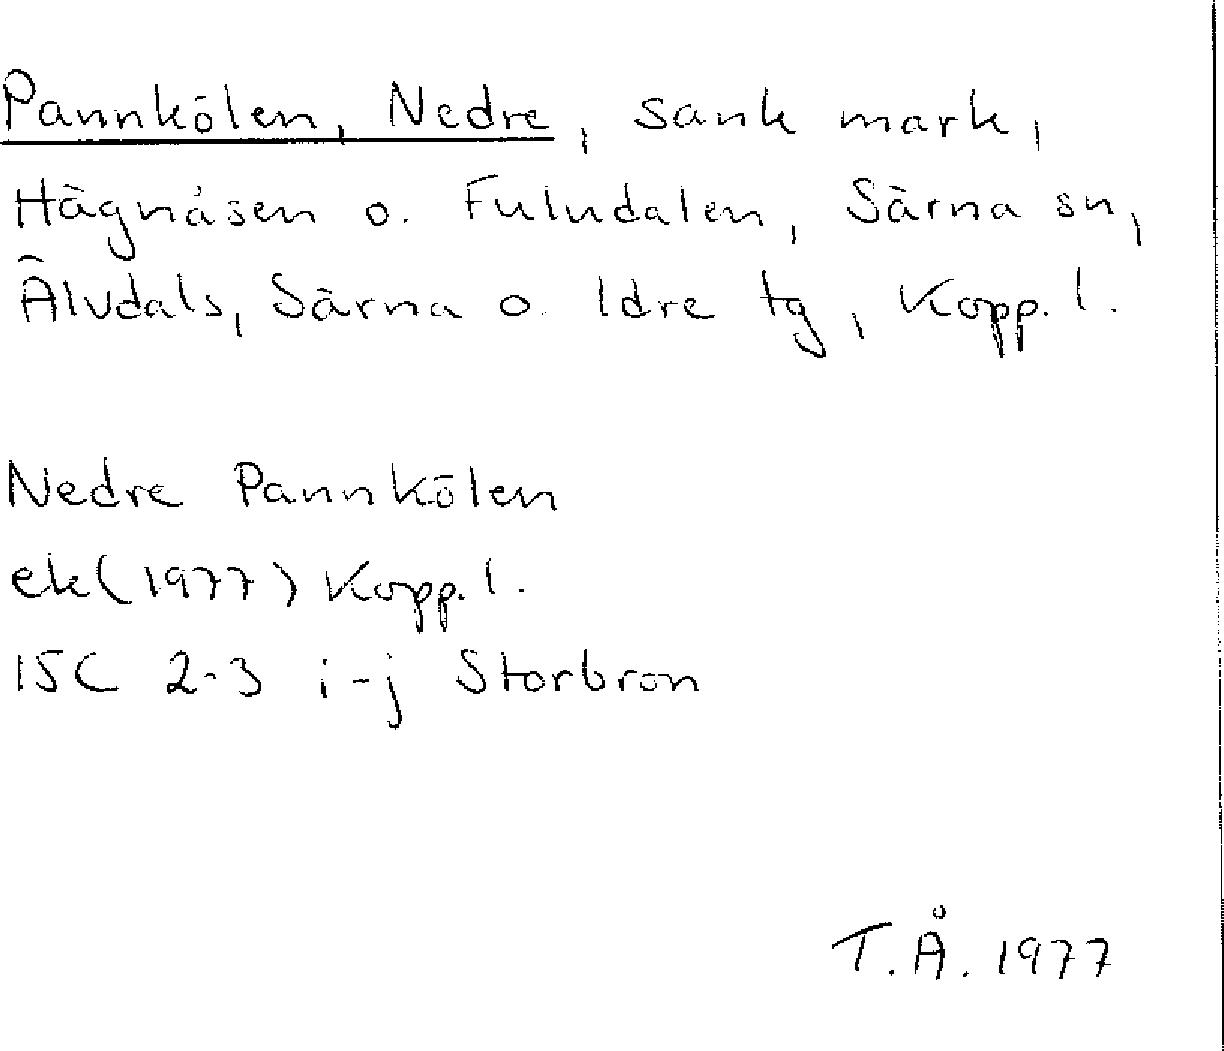 Pannkölen, Nedre, sank mark,
Hägnåsen o. Fuludalen, Särna sn,
Älvdals, Särna o. Idre tg, Kopp. l.
Nedre Pannkölen
ek(1977) Kopp. l.
15C 2-3 i-j Storbron
T.Å. 1977